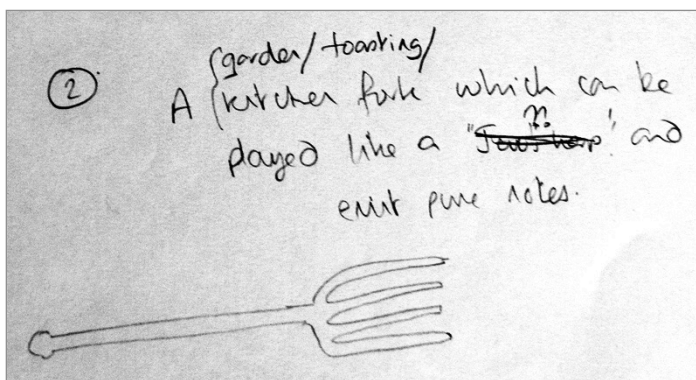 ② {garden/toasting/
A {kitchen fork which can be
??
played like a "Jews harp" and
emit pure notes.